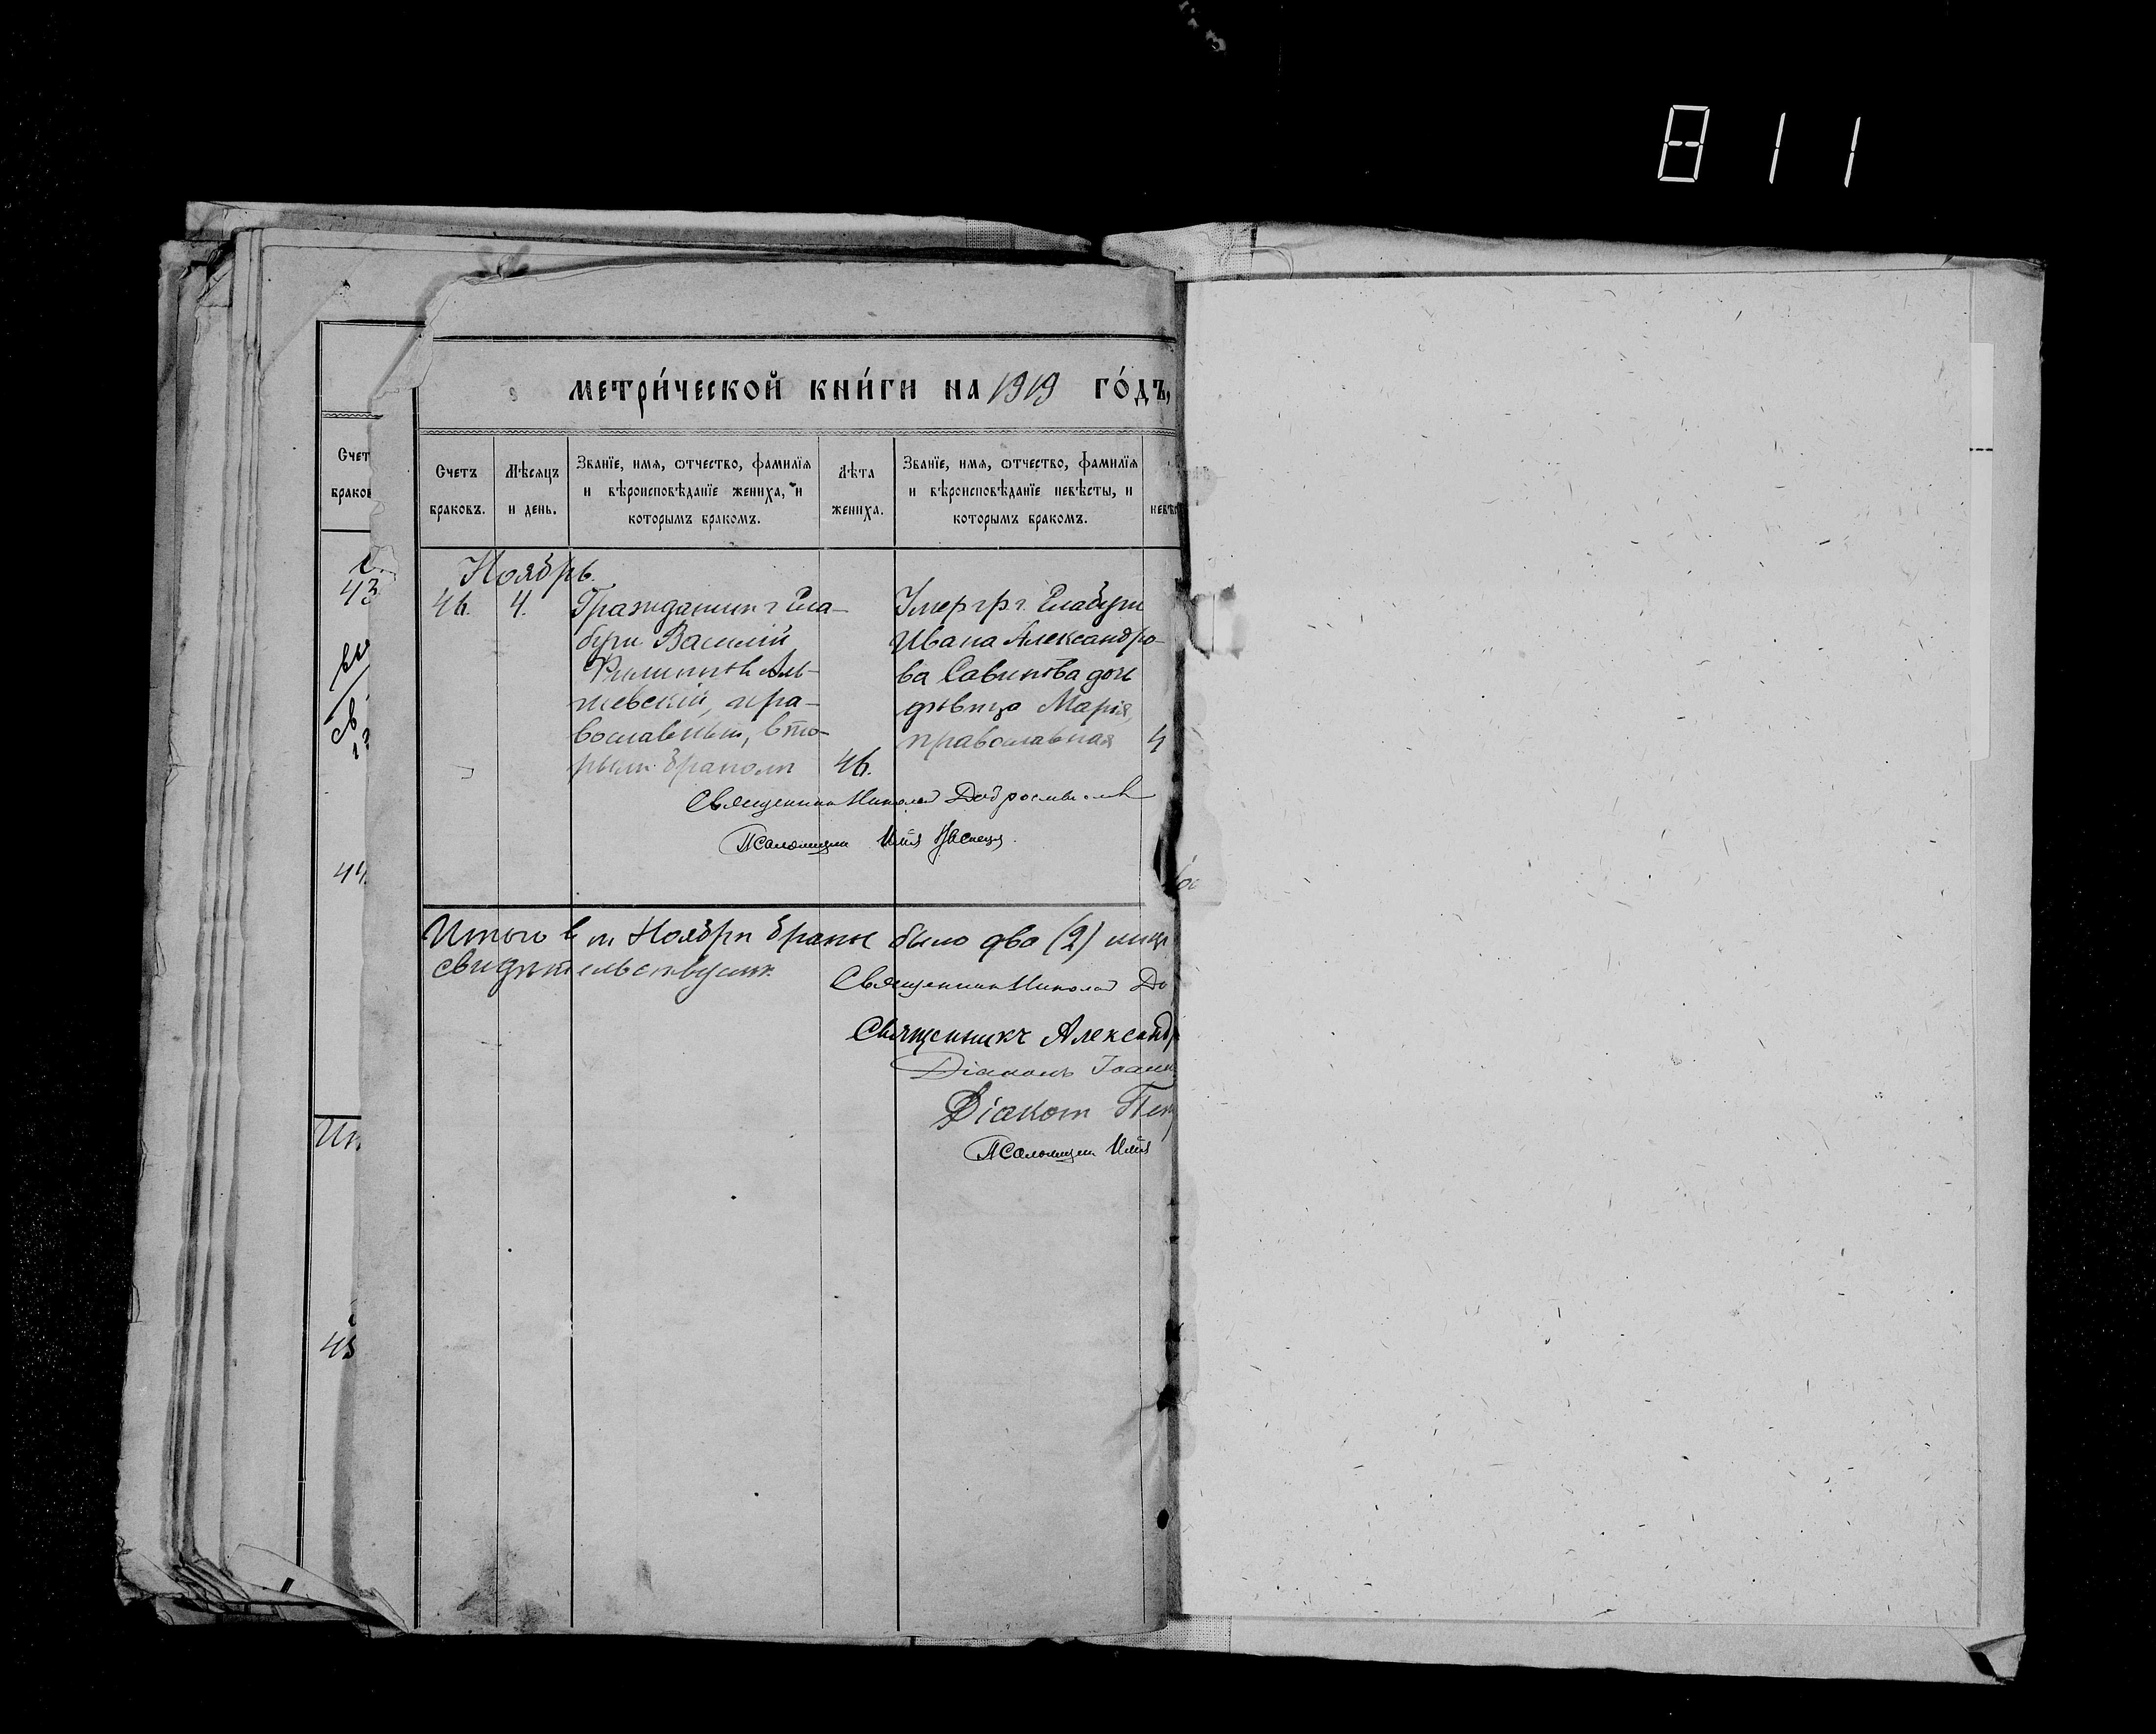 811
метри́ческой кни́ги на 1919 го́дъ,
Счет
браков
Счетъ
браковъ.
Мѣсяцъ
и день.
Званїе, имя, ѿтчество, фамилїя
и вѣроисповѣданїе жениха, и
которымъ бракомъ.
Лѣта
жениха.
Званїе, имя, ѿтчество, фамилїя
и вѣроисповѣданїе невѣсты, и
которымъ бракомъ.
невѣс
43
44.
45
Ноябрь.
46. 4.
Гражданинъ г. Ела-
буги Василій
Филипповъ
православный, вто-
рымъ бракомъ
46.
Умер. гр. г. Елабуги
Ивана Александро-
ва Савинова дочь
дѣвица Марія,
православная
4
Священникъ Николай Добросмысловъ
Псаломщикъ Илія
Итого в м. Ноябрѣ браковъ было два (2)
свидѣтельствуемъ.
Священникъ Николай До
Священникъ Александр
Діаконъ Іоанн
Діаконъ Пет
Псаломщикъ Илія